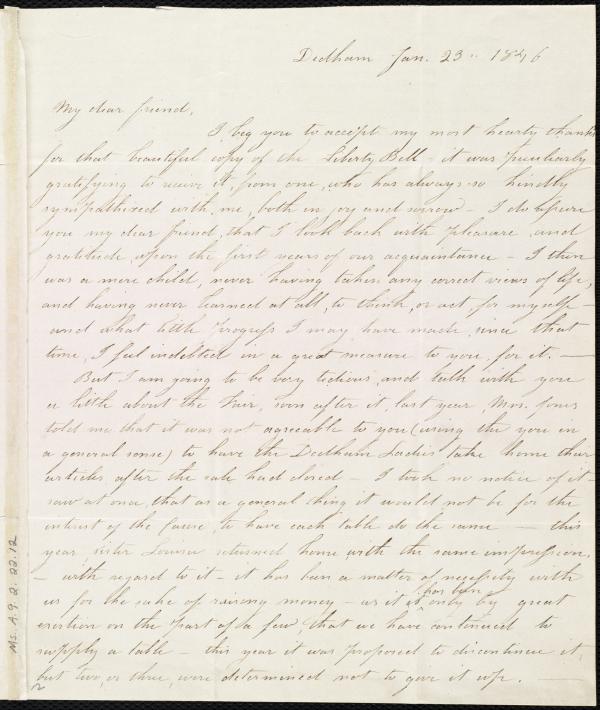 Dedham Jan. 23. 1846
My dear friend,
I beg you to accept my most hearty thanks
for that beautiful copy of the Liberty Bell - it was peculiarly
gratifying to receive it, from one, who has always so kindly
sympathized with me, both in joy and sorrow - I do assure
you my dear friend, that I look back with pleasure and
gratitude upon the first years of our acquaintance - I then
was a mere child, never having taken any correct views of life,
and having never learned at all, to think, or act, for myself -
and what little progress I may have made, since that
time, I feel indebted in a great measure to you, for it. —
But I am going to be very tedious, and talk with you
a little about the Fair, soon after it, last year, Mrs. Jones
told me that it was not agreeable to you (using the you in
a general sense) to have the Dedham Ladies take home their
articles after the sale had closed - I took no notice of it -
saw at once, that as a general thing it would not be for the
interest of the Cause, to have each table do the same — this
year sister Louisa returned home with the same impression.
- with regard to it - it has been a matter of necessity with
us for the sake of raising money - as it has been only by great
exertion on the part of a few, that we have continued to
supply a table - this year it was proposed to discontinue it,
but two, or three, were determined not to give it up. —
Ms. A.9.2.22.12